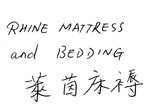 RHINE MATTRESS
and BEDDING
萊茵床褥